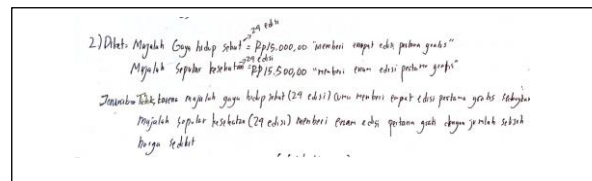 29 edisi
2) Diket: Majalah Gaya hidup sehat = Rp15.000,00 "memberi empat edisi pertama gratis"
29 edisi
Majalah seputar kesehatan = Rp15.500,00 "memberi enam edisi pertama gratis"
Jawaban Tidak, karena majalah gaya hidup sehat (29 edisi) cuma memberi empat edisi pertama gratis sedangkan
majalah seputar kesehatan (29 edisi) memberi enam edisi pertama gratis dengan jumlah selisih
harga sedikit